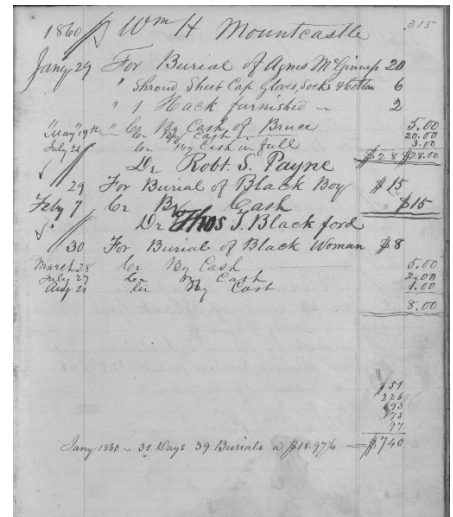 315
1860 Wm H Mountcastle
Jany 29 For Burial of Agnes McGinness 20
" Shroud Sheet Cap Gloves, Socks & Cotton 6
" 1 Hack furnished 2
"May" 19th " Cr By Cash of Bruce 5.00
Cr By Cash 20.00
July 21 Cr By Cash in full 3.00
$28 $28.00
Dr Robt. S. Payne
29 For Burial of Black Boy $15
Feby 7 Cr By Cash $15
Dr Thos J. Blackford
30 For Burial of Black Woman $8
March 28 Cr By Cash 5.00
July 27 Cr By Cash 2.00
Augt 21 Cr By Cash 1.00
8.00
$51
226
293
73
97
Jany 1860 - 31 Days 39 Burials a $18.97½ — $740